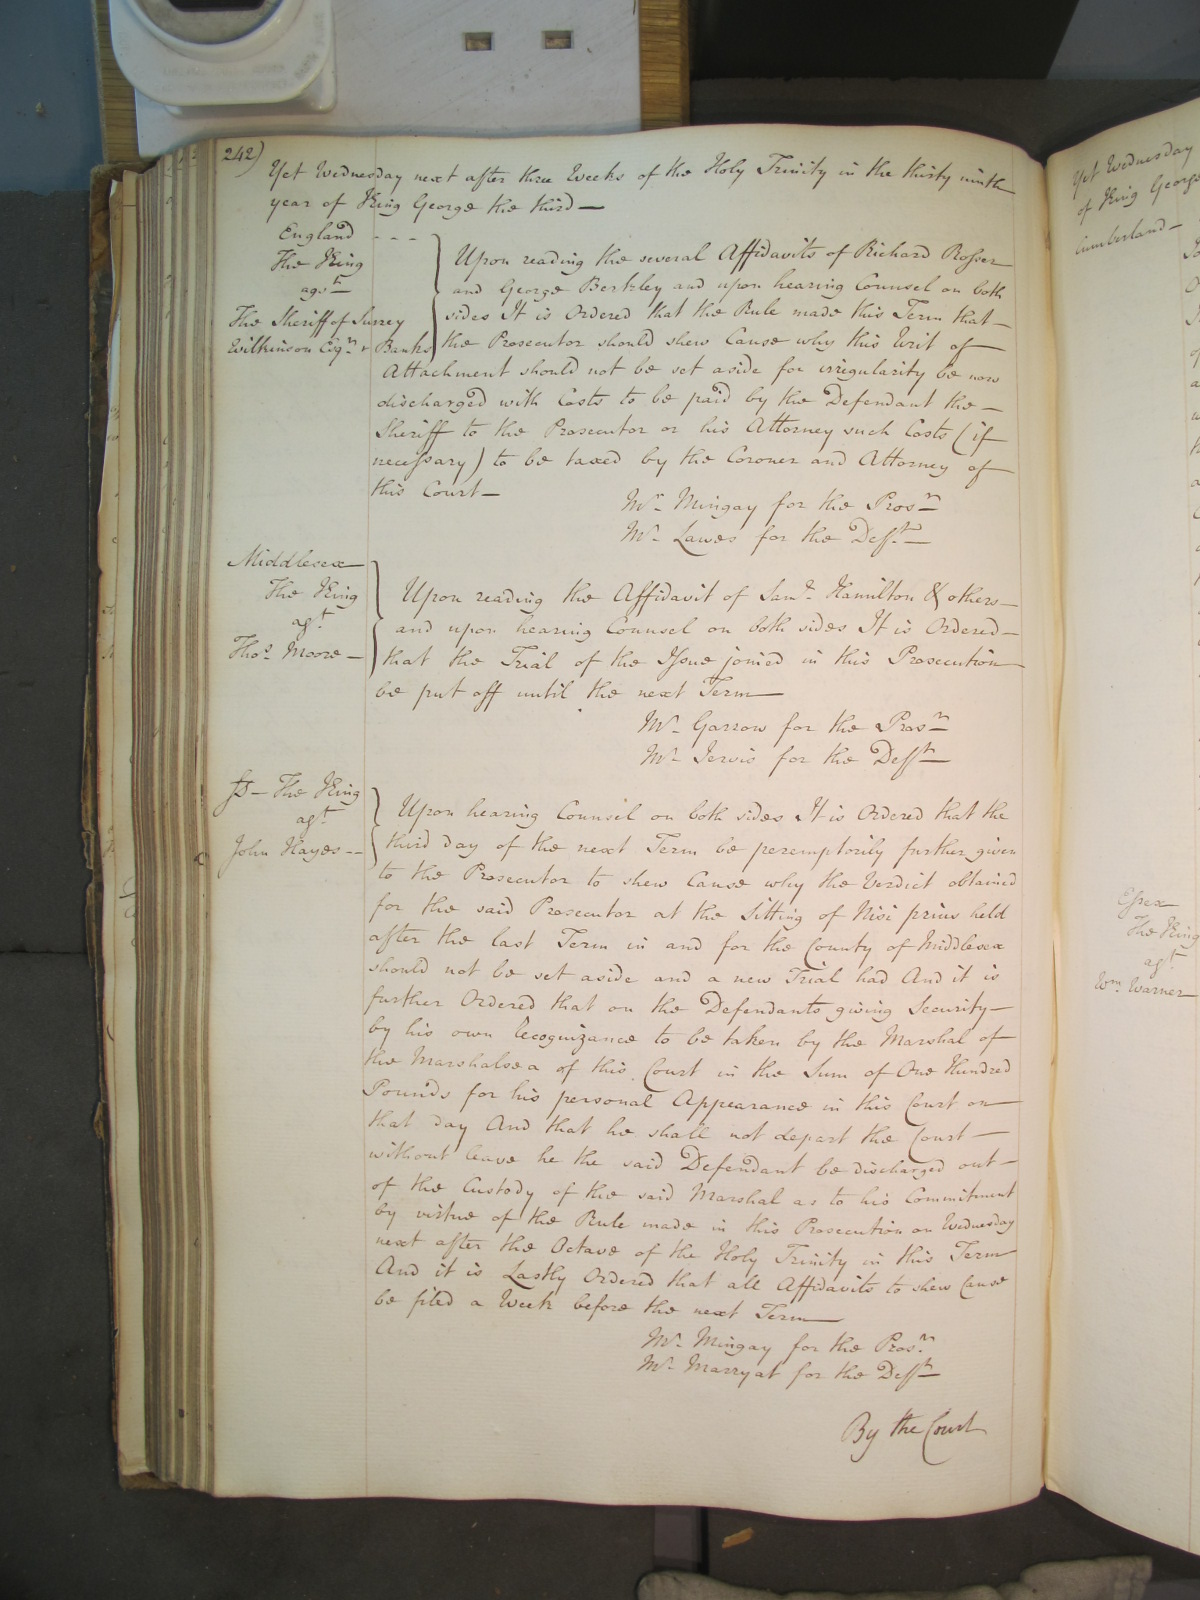 242)
Yet Wednesday next after three Weeks of the Holy Trinity in the thirty ninth
year of King George the third —
England - - -
The King
agst
The Sheriff of Surrey
Wilkinson Esqr & Banks
Upon reading the several Affidavits of Richard Rosser
and George Berkley and upon hearing Counsel on both
sides It is Ordered that the Rule made this Term that —
the Prosecutor should shew Cause why this Writ of
Attachment should not be set aside for irregularity be now
discharged with Costs to be paid by the Defendant the —
Sheriff to the Prosecutor or his Attorney such Costs (if
necessary) to be taxed by the Coroner and Attorney of
this Court —
Mr Mingay for the Prosn
Mr Lawes for the Deft —
Middlesex
The King
agt
Thos Moore —
Upon reading the Affidavit of Saml Hamilton & others —
and upon hearing Counsel on both sides It is Ordered —
that the Trial of the Issue joined in this Prosecution
be put off until the next Term —
Mr Garrow for the Prosn
Mr Jervis for the Deft
The King
agt
John Hayes --
Upon hearing Counsel on both sides It is Ordered that the
third day of the next Term be peremptorily further given
to the Prosecutor to shew Cause why the Verdict obtained
for the said Prosecutor at the Sitting of Nisi prius held
after the last Term in and for the County of Middlesex
should not be set aside and a new Trial had And it is
further Ordered that on the Defendants giving Security —
by his own Recognizance to be taken by the Marshal of
the Marshalsea of this Court in the Sum of One Hundred
Pounds for his personal Appearance in this Court on
that day And that he shall not depart the Court —
without leave he the said Defendant be discharged out —
of the Custody of the said Marshal as to his Commitment
by virtue of the Rule made in this Prosecution on Wednesday
next after the Octave of the Holy Trinity in this Term
And it is Lastly Ordered that all Affidavits to shew Cause
be filed a Week before the next Term
Mr Mingay for the Prosn
Mr Marryat for the Deft
By the Court
Yet Wednesday
of King George
Cumberland —
Essex
The King
agt
Wm Warner